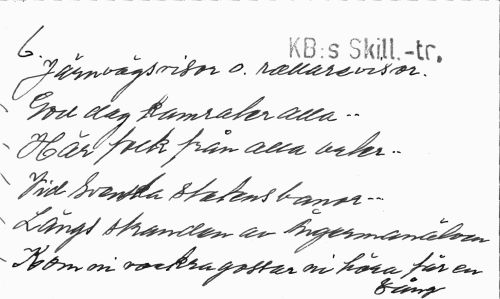 6.
KB:s Skill.-tr.
Järnvägsvisor o. rallarevisor.
God dag kamrater alla --
Här folk från alla orter --
Vid Svenska statensbanor --
Längs stranden av Ångermanälven
Kom ni vackra gossar ni höra får en
sång